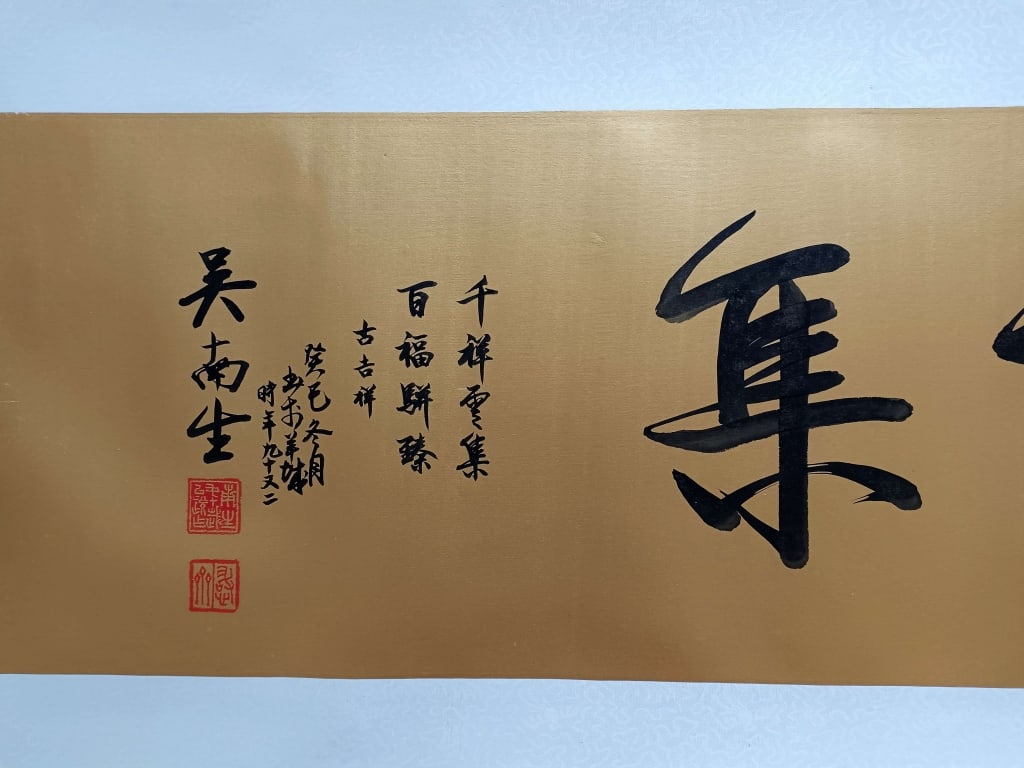 集
千祥雲集
百福駢臻
古吉祥
癸巳冬月
書於羊城
時年九十又二
吴南生